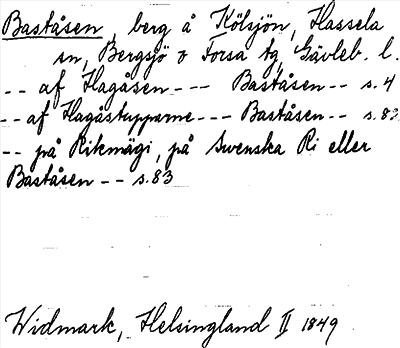 Baståsen, berg å Kölsjön, Hassela
sn, Bergsjö o Forsa tg, Gävleb. l.
-- af Hagåsen --- Baståsen -- s.4
-- af Hagåstupparne --- Baståsen -- s.83
-- på Rikmägi, på Swenska Ri eller
Baståsen -- s.83
Widmark, Helsingland II 1849